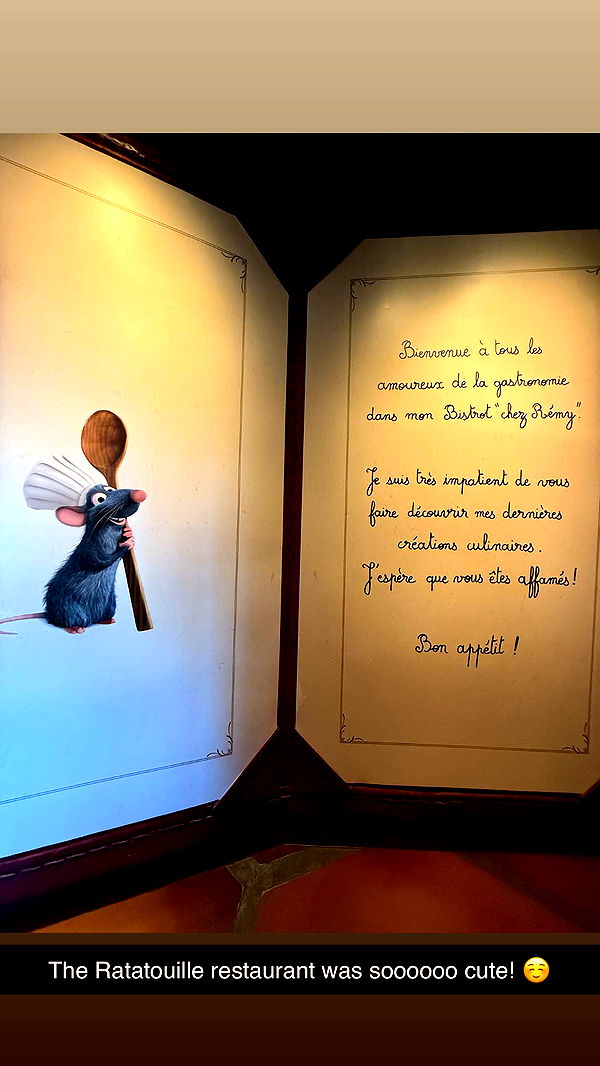 Bienvenue à tous les
amoureux de la gastronomie
dans mon Bistrot "chez Rémy".
Je suis très impatient de vous
faire découvrir mes dernières
créations culinaires.
J'espère que vous êtes affamés!
Bon appétit !
The Ratatouille restaurant was soooooo cute! ☺️